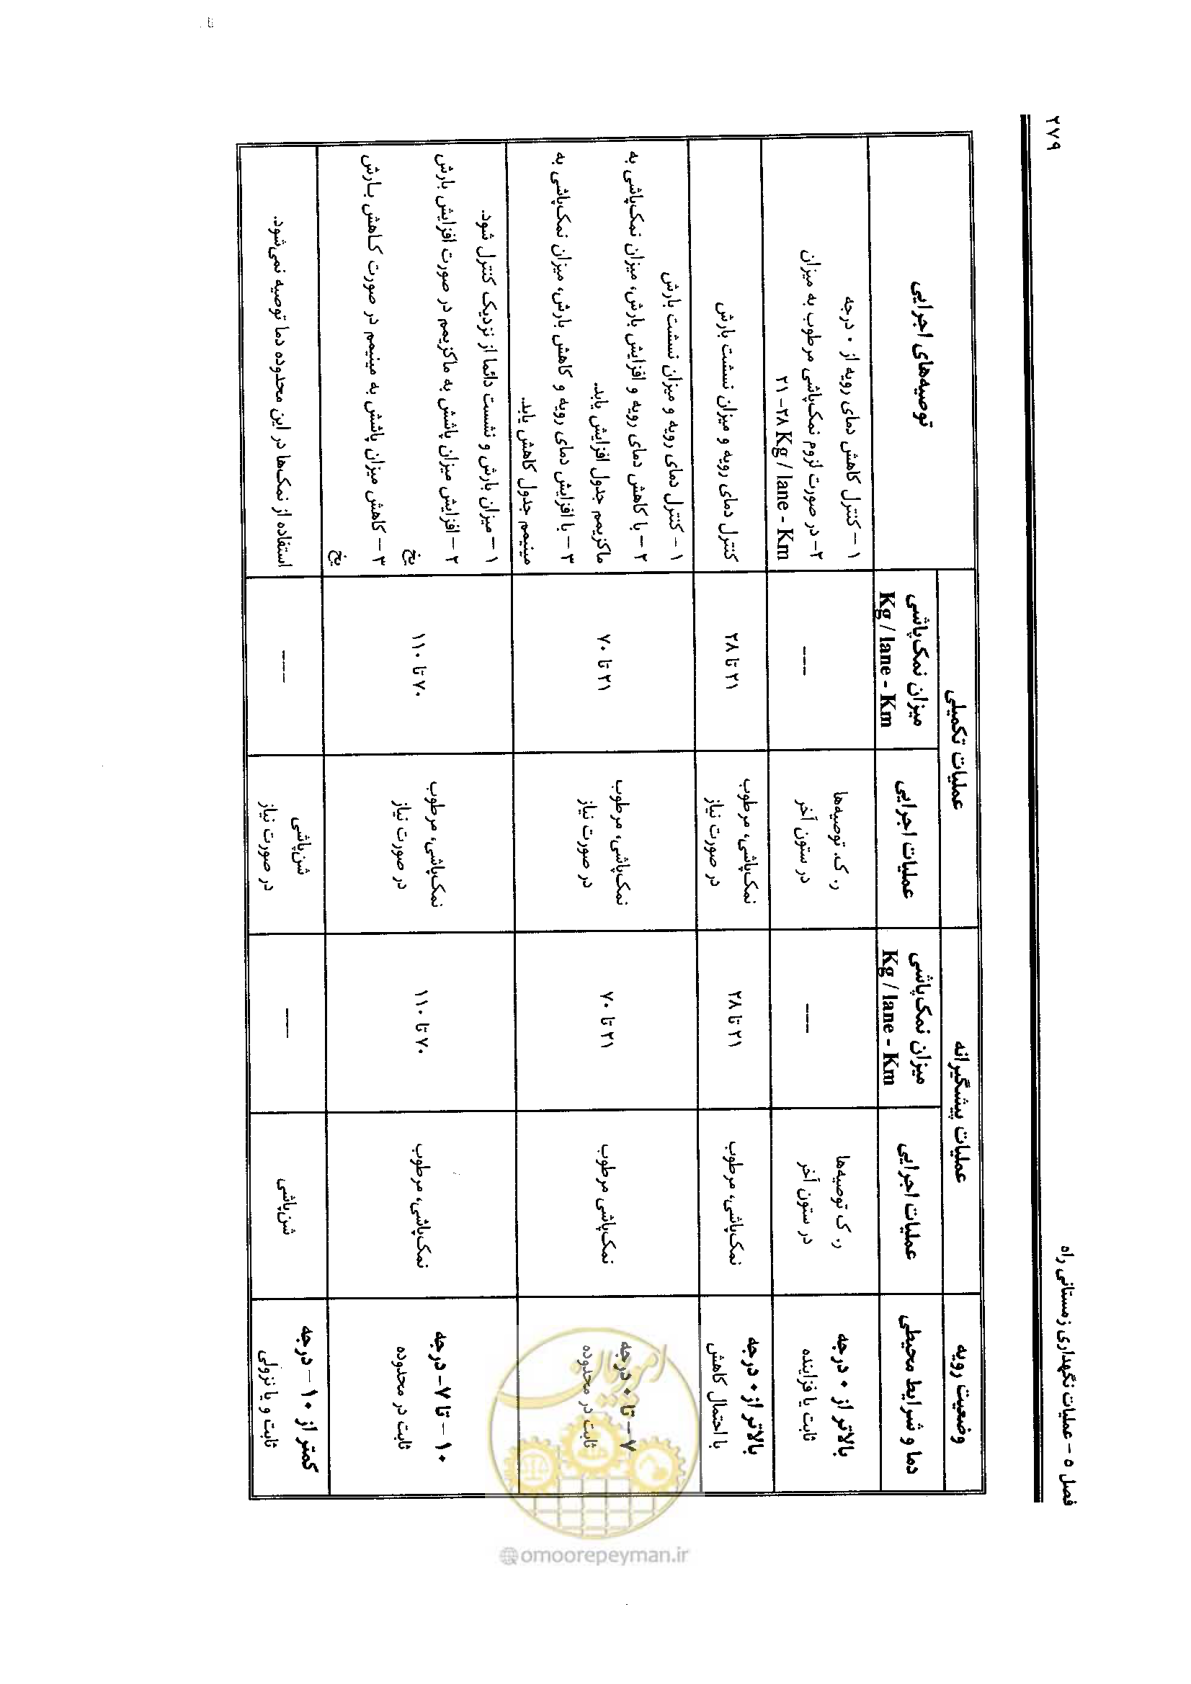 فصل ۵ – عملیات نگهداری زمستانی راه
۲۷۹
وضعیت رویه
عملیات پیشگیرانه
عملیات تکمیلی
توصیه‌های اجرایی
دما و شرایط محیطی
عملیات اجرایی
میزان نمک‌پاشی
Kg / lane - Km
عملیات اجرایی
میزان نمک‌پاشی
Kg / lane - Km
بالاتر از ۰ درجه
ثابت یا فزاینده
ر. ک توصیه‌ها
در ستون آخر
---
ر. ک. توصیه‌ها
در ستون آخر
---
۱ – کنترل کاهش دمای رویه از ۰ درجه
۲– در صورت لزوم نمک‌پاشی مرطوب به میزان
۲۱–۲۸ Kg / lane - Km
بالاتر از ۰ درجه
با احتمال کاهش
نمک‌پاشی، مرطوب
۲۱ تا ۲۸
نمک‌پاشی، مرطوب
در صورت نیاز
۲۱ تا ۲۸
کنترل دمای رویه و میزان نسشت بارش
۷ – تا ۰ درجه
ثابت در محدوده
نمک‌پاشی مرطوب
۲۱ تا ۷۰
نمک‌پاشی، مرطوب
در صورت نیاز
۲۱ تا ۷۰
۱ – کنترل دمای رویه و میزان نسشت بارش
۲ – با کاهش دمای رویه و افزایش بارش، میزان نمک‌پاشی به
ماکزیمم جدول افزایش یابد.
۳ – با افزایش دمای رویه و کاهش بارش، میزان نمک‌پاشی به
مینیمم جدول کاهش یابد.
۱۰ – تا ۷- درجه
ثابت در محدوده
نمک‌پاشی، مرطوب
۷۰ تا ۱۱۰
نمک‌پاشی، مرطوب
در صورت نیاز
۷۰ تا ۱۱۰
۱ – میزان بارش و نشست دائما از نزدیک کنترل شود.
۲ – افزایش میزان پاشش به ماکزیمم در صورت افزایش بارش
یخ
۳ – کاهش میزان پاشش به مینیمم در صورت کاهش بارش
یخ
کمتر از ۱۰ – درجه
ثابت و یا نزولی
شن‌پاشی
---
شن‌پاشی
در صورت نیاز
---
استفاده از نمک‌ها در این محدوده دما توصیه نمی‌شود.
امور پیمان
@omoorepeyman.ir